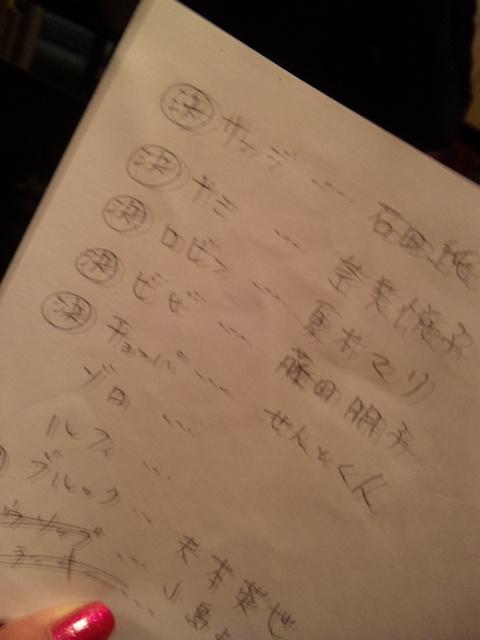 ㊍決 サンジ … 石田純
決 ナミ … 奈美悦子
決 ロビン … 夏木マリ
決 ビビ … 藤田朋子
決 チョッパー … せんとくん
ゾロ …
ルフィ …
ブルック …
ウソップ … 夫本英世
ラッキー … 小島よ